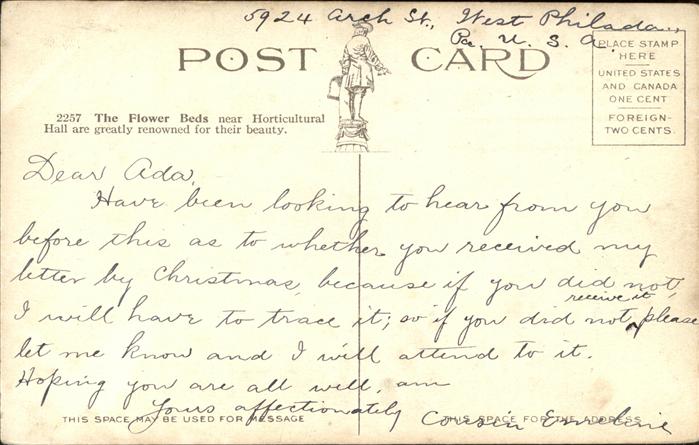 5924 Arch St., West Philada.,
Pa. U. S. A.
POST CARD
PLACE STAMP
HERE
UNITED STATES
AND CANADA
ONE CENT
FOREIGN-
TWO CENTS.
2257 The Flower Beds near Horticultural
Hall are greatly renowned for their beauty.
Dear Ada,
Have been looking to hear from you
before this as to whether you received my
letter by Christmas, because if you did not,
I will have to trace it; so if you did not receive it, please
let me know and I will attend to it.
Hoping you are all well, am
Yours affectionately Cousin Emeline
THIS SPACE MAY BE USED FOR MESSAGE
THIS SPACE FOR THE ADDRESS